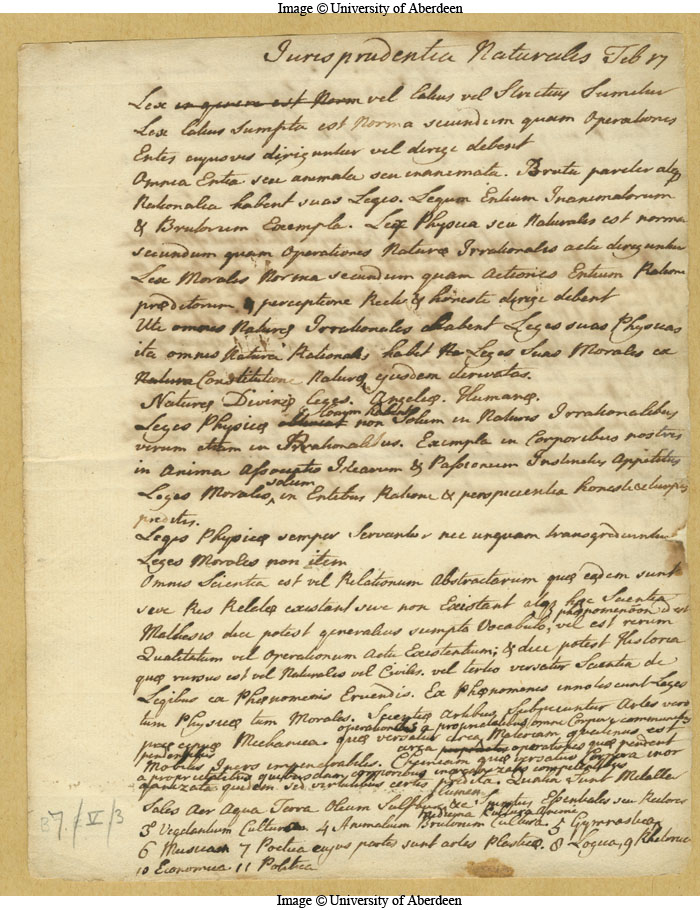 Image © University of Aberdeen
Jurisprudentia Naturalis Feb 17
Lex in genere est Norm vel latius vel Strictius Sumitur
Lex latius Sumpta est Norma secundum quam Operationes
Entis cujusvis diriguntur vel dirigi debent
Omnia Entia seu animata seu inanimata. Bruta pariter atq
Rationalia habent suas Leges. Legum Entium Inanimatorum
& Brutorum Exempla. Lex Physica seu Naturalis est norma
secundum quam Operationes Naturæ Irrationalis actu diriguntur
Lex Moralis Norma secundum quam Actiones Entium Ratione
præditorum & perceptione Recti & honesti dirigi debent
Uti omnes Naturæ Irrationales habent Leges suas Physicas
ita omnis Natura Rationalis habet Leges Suas Morales ex
Natura Constitutione Naturæ ejusdem derivatas.
Naturæ Divinæ Leges. Angelicæ. Humanæ.
Leges Physicæ locum habent non Solum in Naturis Irrationalibus
verum etiam in Rationalibus. Exempla in Corporibus nostris
in Anima Associatio Idearum & Passionum Instinctus Appetitus
Leges Morales solum in Entibus Ratione & perspicientia honesti & turpis
præditis.
Leges Physicæ semper Servantur nec unquam transgrediuntur
Leges Morales non item
Omnis Scientia est vel Relationum Abstractarum quæ eædem sunt
sive Res Relatæ existant sive non Existant atq hæc Scientia
Mathesis dici potest generalius sumpto Vocabulo, vel est rerum
phænomenôn
Qualitatum vel Operationum Actu Existentium; & dici potest Historia
quæ rursus est vel Naturalis vel Civilis. vel tertio versatur Scientia de
Legibus ex Phænomenis Eruendis. Ex Phænomenis innotescunt Leges
tum Physicæ tum Morales. Scientiæ Artibus Subjiciuntur Artes vero
præcipuæ Mechanica quæ versatur circa Materiam quatenus est
operationes a proprietatibus omni Corpori communibus
pendentibus
Mobilis Iners impenetrabilis. Chymicam quæ versatur
circa operationes quæ pendent
a proprietatibus quibusdam corporibus
quidem sed virtutibus certis prædita. Qualia Sunt Metalla
Sales Aer Aqua Terra Oleum Sulphur &c Spiritus Essentiales seu Rectores
3 Vegetantium Cultura 4 Animalium Brutorum Cultura. 5 Gymnastica
6 Musica 7 Poetica cujus partes sunt artes Plasticæ. 8 Logica, 9 Rhetorica
10 Economica 11 Politica
87. / V / 3
Image © University of Aberdeen